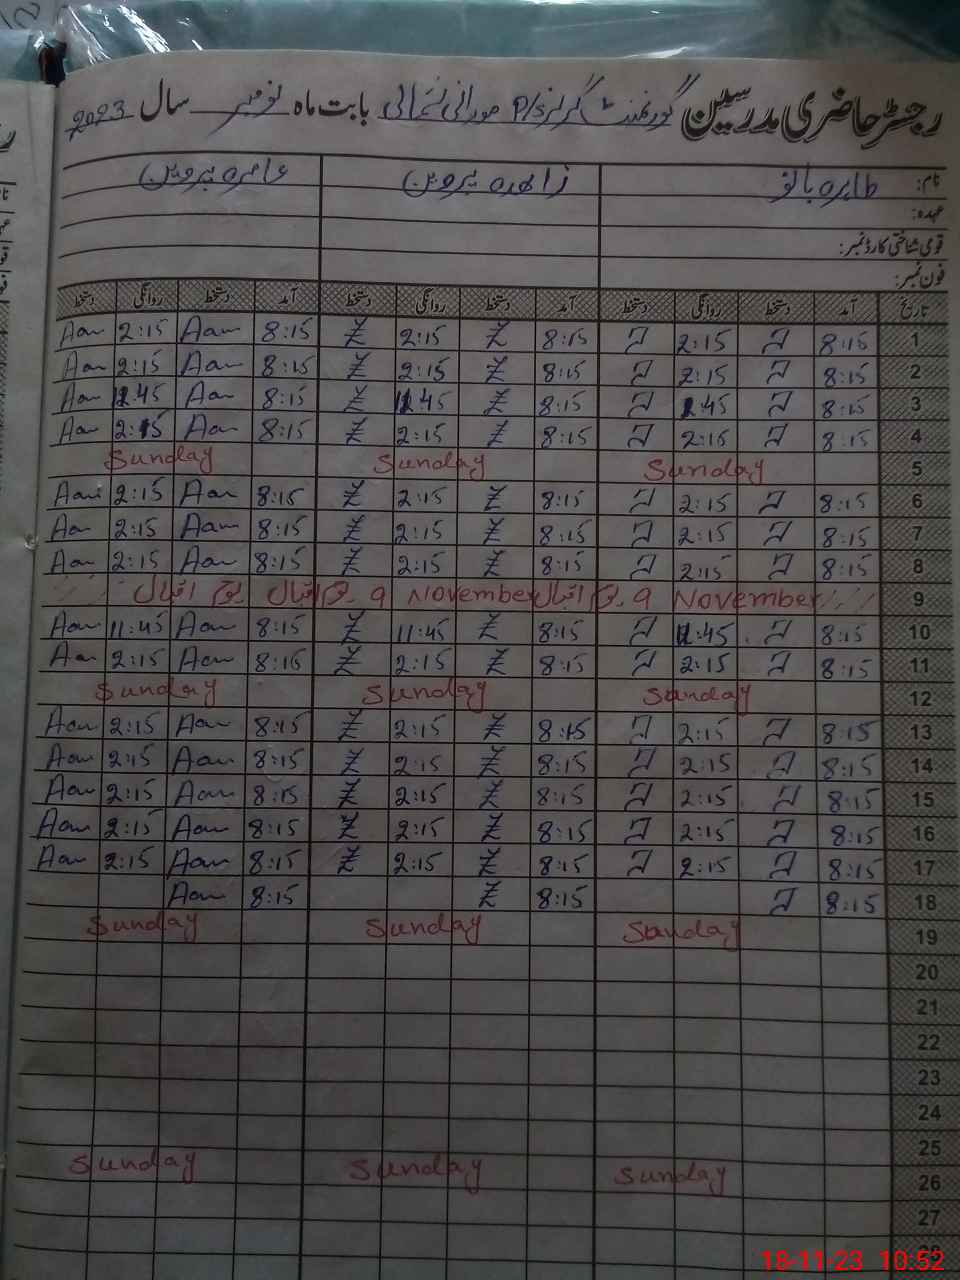 رجسٹر حاضری مدرسین گورنمنٹ گرلز P/S مورانی شمالی بابت ماہ نومبر سال 2023
نام: طاہرہ بانو زاھدہ پروین عامرہ پروین
عہدہ:
قومی شناختی کارڈ نمبر:
فون نمبر:
تاریخ آمد دستخط روانگی دستخط آمد دستخط روانگی دستخط آمد دستخط روانگی دستخط
1 8:15 2:15 8:15 Z 2:15 Z 8:15 Aan 2:15 Aan
2 8:15 2:15 8:15 Z 2:15 Z 8:15 Aan 2:15 Aan
3 8:15 45 8:15 Z 45 Z 8:15 Aan 45 Aan
4 8:15 2:15 8:15 Z 2:15 Z 8:15 Aan 2:15 Aan
5 Sunday Sunday Sunday
6 8:15 2:15 8:15 Z 2:15 Z 8:15 Aan 2:15 Aan
7 8:15 2:15 8:15 Z 2:15 Z 8:15 Aan 2:15 Aan
8 8:15 2:15 8:15 Z 2:15 Z 8:15 Aan 2:15 Aan
9 9 November یوم اقبال 9 November یوم اقبال یوم اقبال
10 8:15 11:45 8:15 Z 11:45 Z 8:15 Aan 11:45 Aan
11 8:15 2:15 8:15 Z 2:15 Z 8:15 Aan 2:15 Aan
12 Sunday Sunday Sunday
13 8:15 2:15 8:15 Z 2:15 Z 8:15 Aan 2:15 Aan
14 8:15 2:15 8:15 Z 2:15 Z 8:15 Aan 2:15 Aan
15 8:15 2:15 8:15 Z 2:15 Z 8:15 Aan 2:15 Aan
16 8:15 2:15 8:15 Z 2:15 Z 8:15 Aan 2:15 Aan
17 8:15 2:15 8:15 Z 2:15 Z 8:15 Aan 2:15 Aan
18 8:15 8:15 Z 8:15 Aan
19 Sunday Sunday Sunday
20
21
22
23
24
25
26 Sunday Sunday Sunday
27
28
18-11-23 10:52